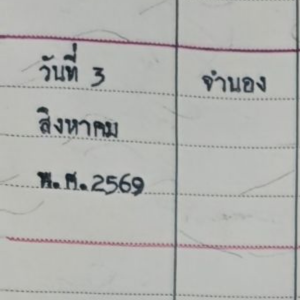 วันที่ 3 จำนอง
สิงหาคม
พ.ศ.2569